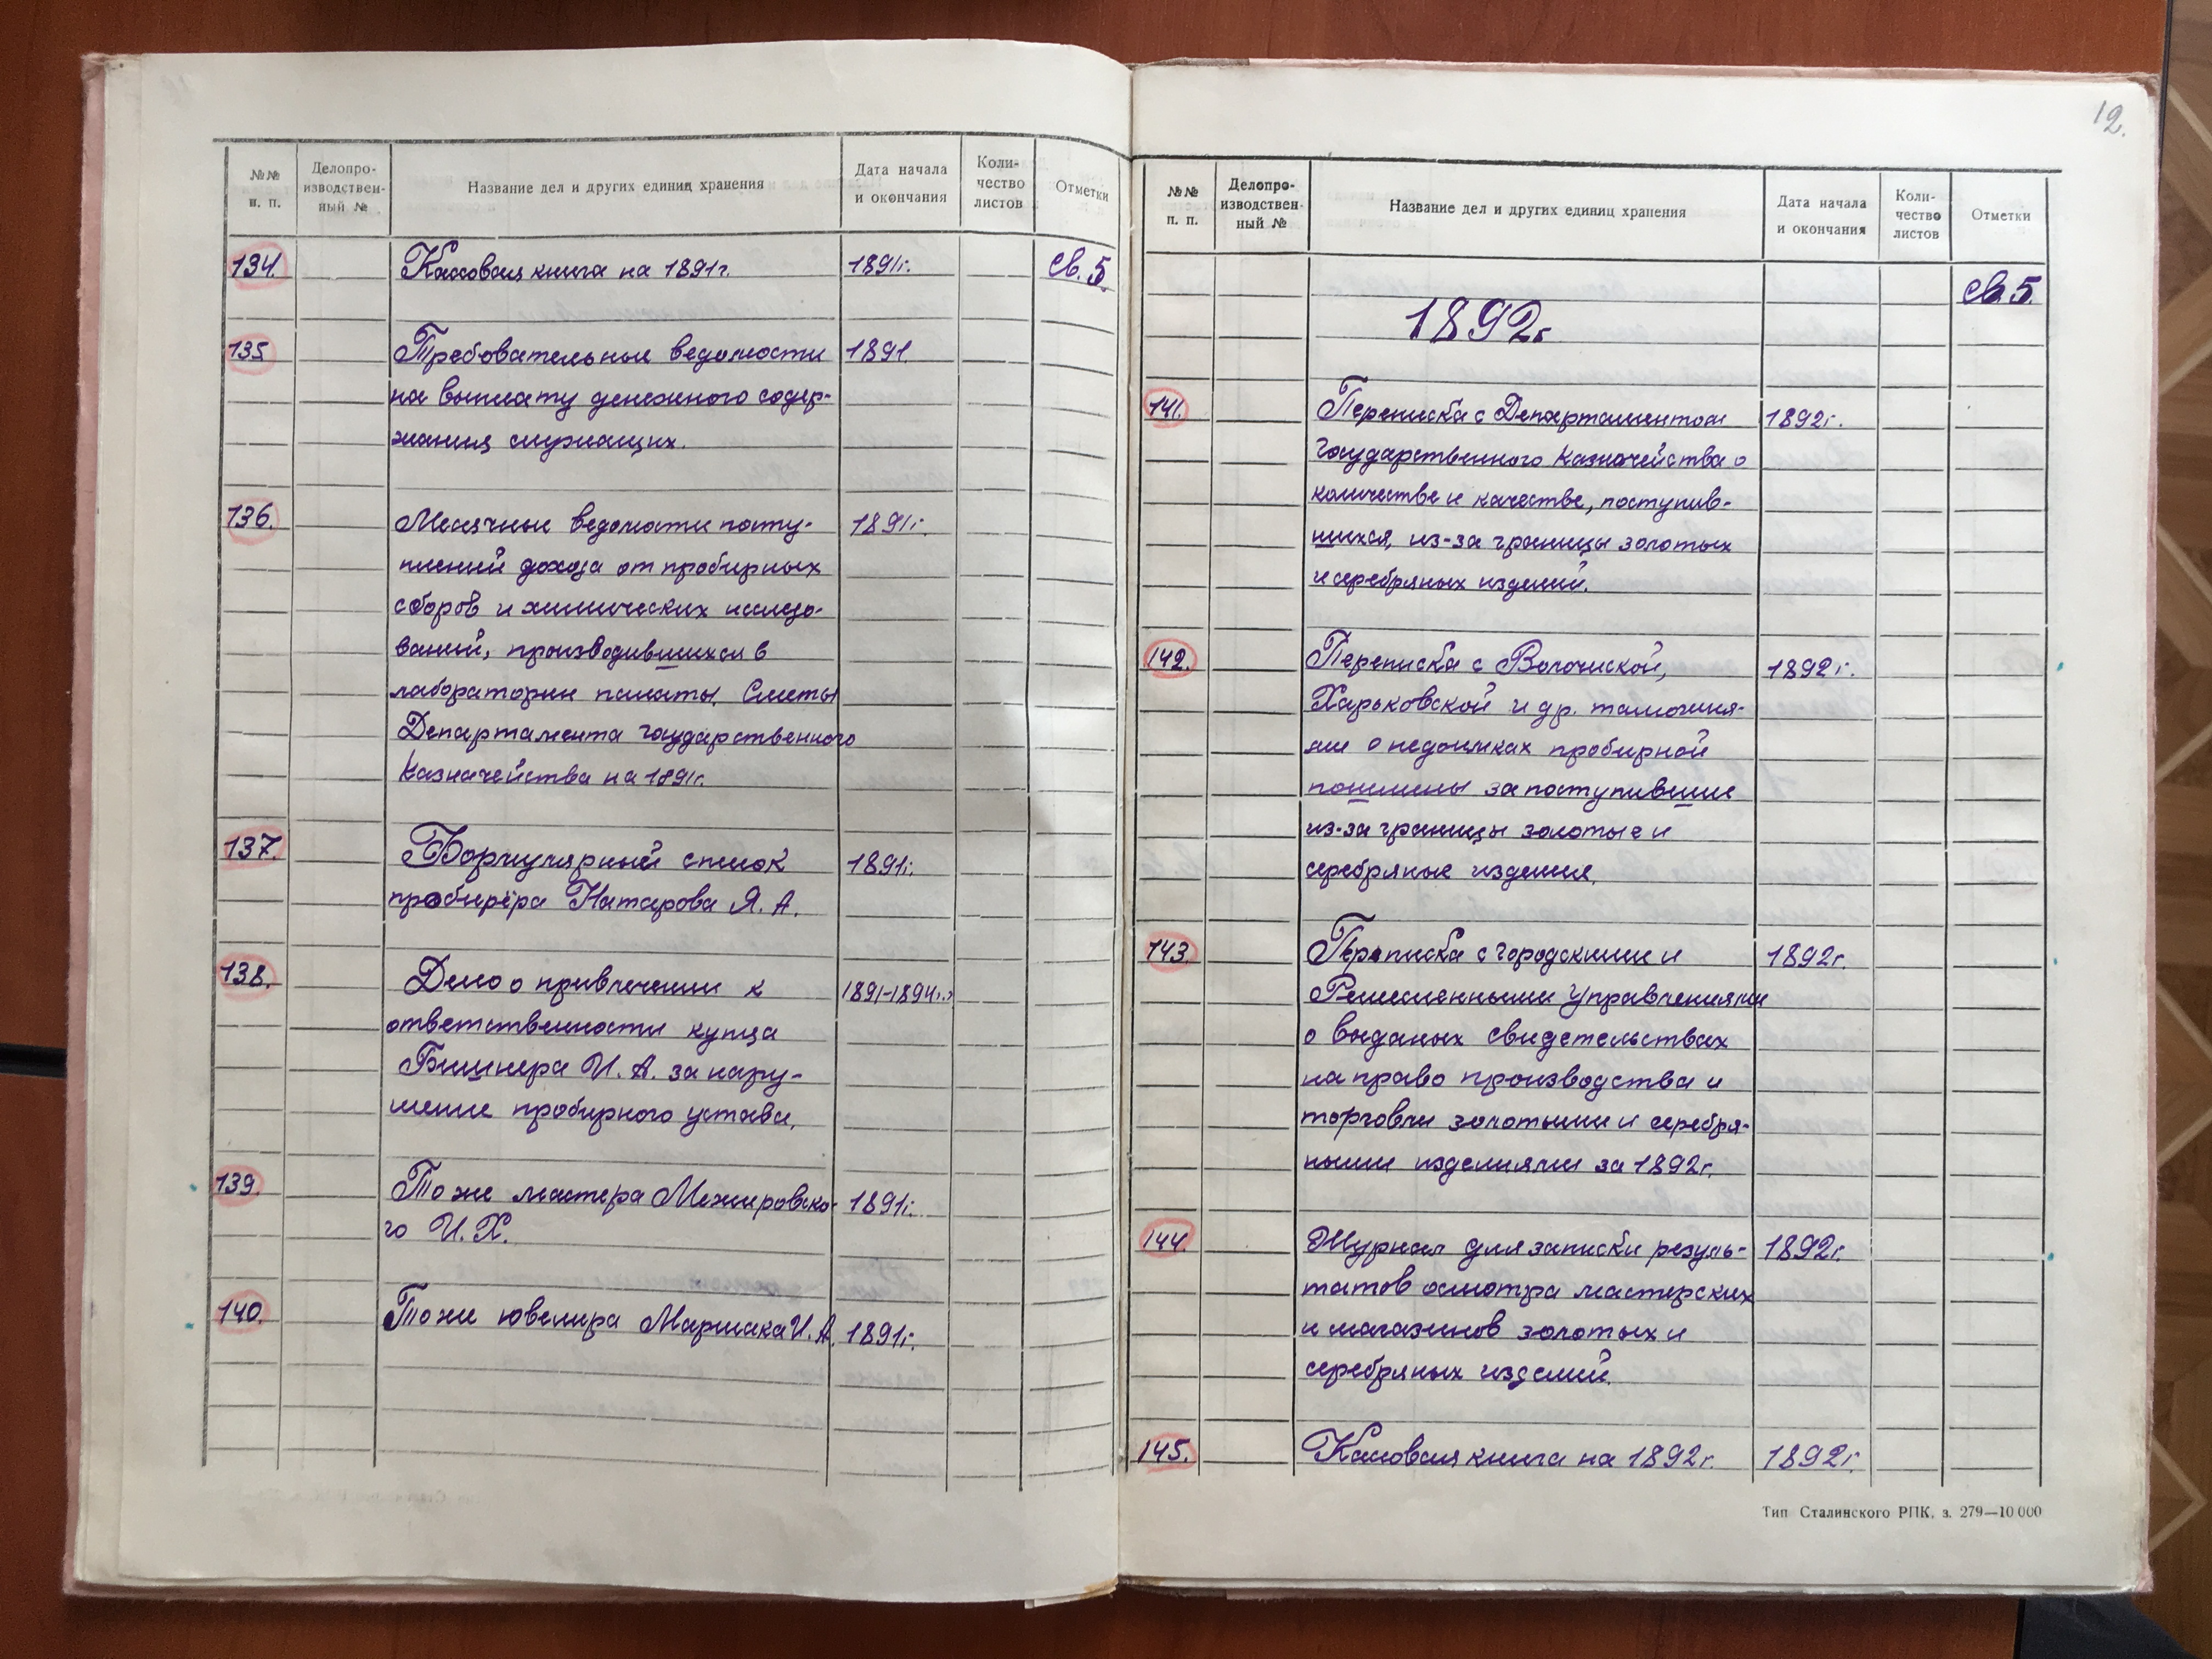 №№ п. п.
Делопро-
изводствен-
ный №
Название дел и других единиц хранения
Дата начала
и окончания
Коли-
чество
листов
Отметки
134. Кассовая книга на 1891г. 1891г. Св. 5.
135 Требовательные ведомости 1891.
на выплату денежного содер-
жания служащих.
136. Месячные ведомости посту- 1891г.
плений дохода от пробирных
сборов и химических исследо-
ваний, производившихся в
лаборатории палаты. Сметы
Департамента государственного
казначейства на 1891г.
137. Формулярный список 1891г.
пробирёра Натарова Я. А.
138. Дело о привлечении к 1891-1894г.г.
ответственности купца
Бишнера И. А. за нару-
шение пробирного устава.
139. То же мастера Межировско- 1891г.
го И. Х.
140. То же ювелира Маршака И. А. 1891г.
12.
№№
п. п.
Делопро-
изводствен-
ный №
Название дел и других единиц хранения
Дата начала
и окончания
Коли-
чество
листов
Отметки
Св. 5.
1892г.
141. Переписка с Департаментом 1892г.
Государственного Казначейства о
количестве и качестве, поступив-
шихся, из-за границы золотых
и серебряных изделий.
142. Переписка с Волочиской, 1892г.
Харьковской и др. таможня-
ми о недоимках пробирной
пошлины за поступившие
из-за границы золотые и
серебряные изделия.
143. Переписка с городскими и 1892г.
Ремесленными Управлениями
о выданых свидетельствах
на право производства и
торговли золотыми и серебря-
ными изделиями за 1892г.
144. Журнал для записки резуль- 1892г.
татов осмотра мастерских
и магазинов золотых и
серебряных изделий.
145. Кассовая книга на 1892г. 1892г.
Тип Сталинского РПК, з. 279—10 000